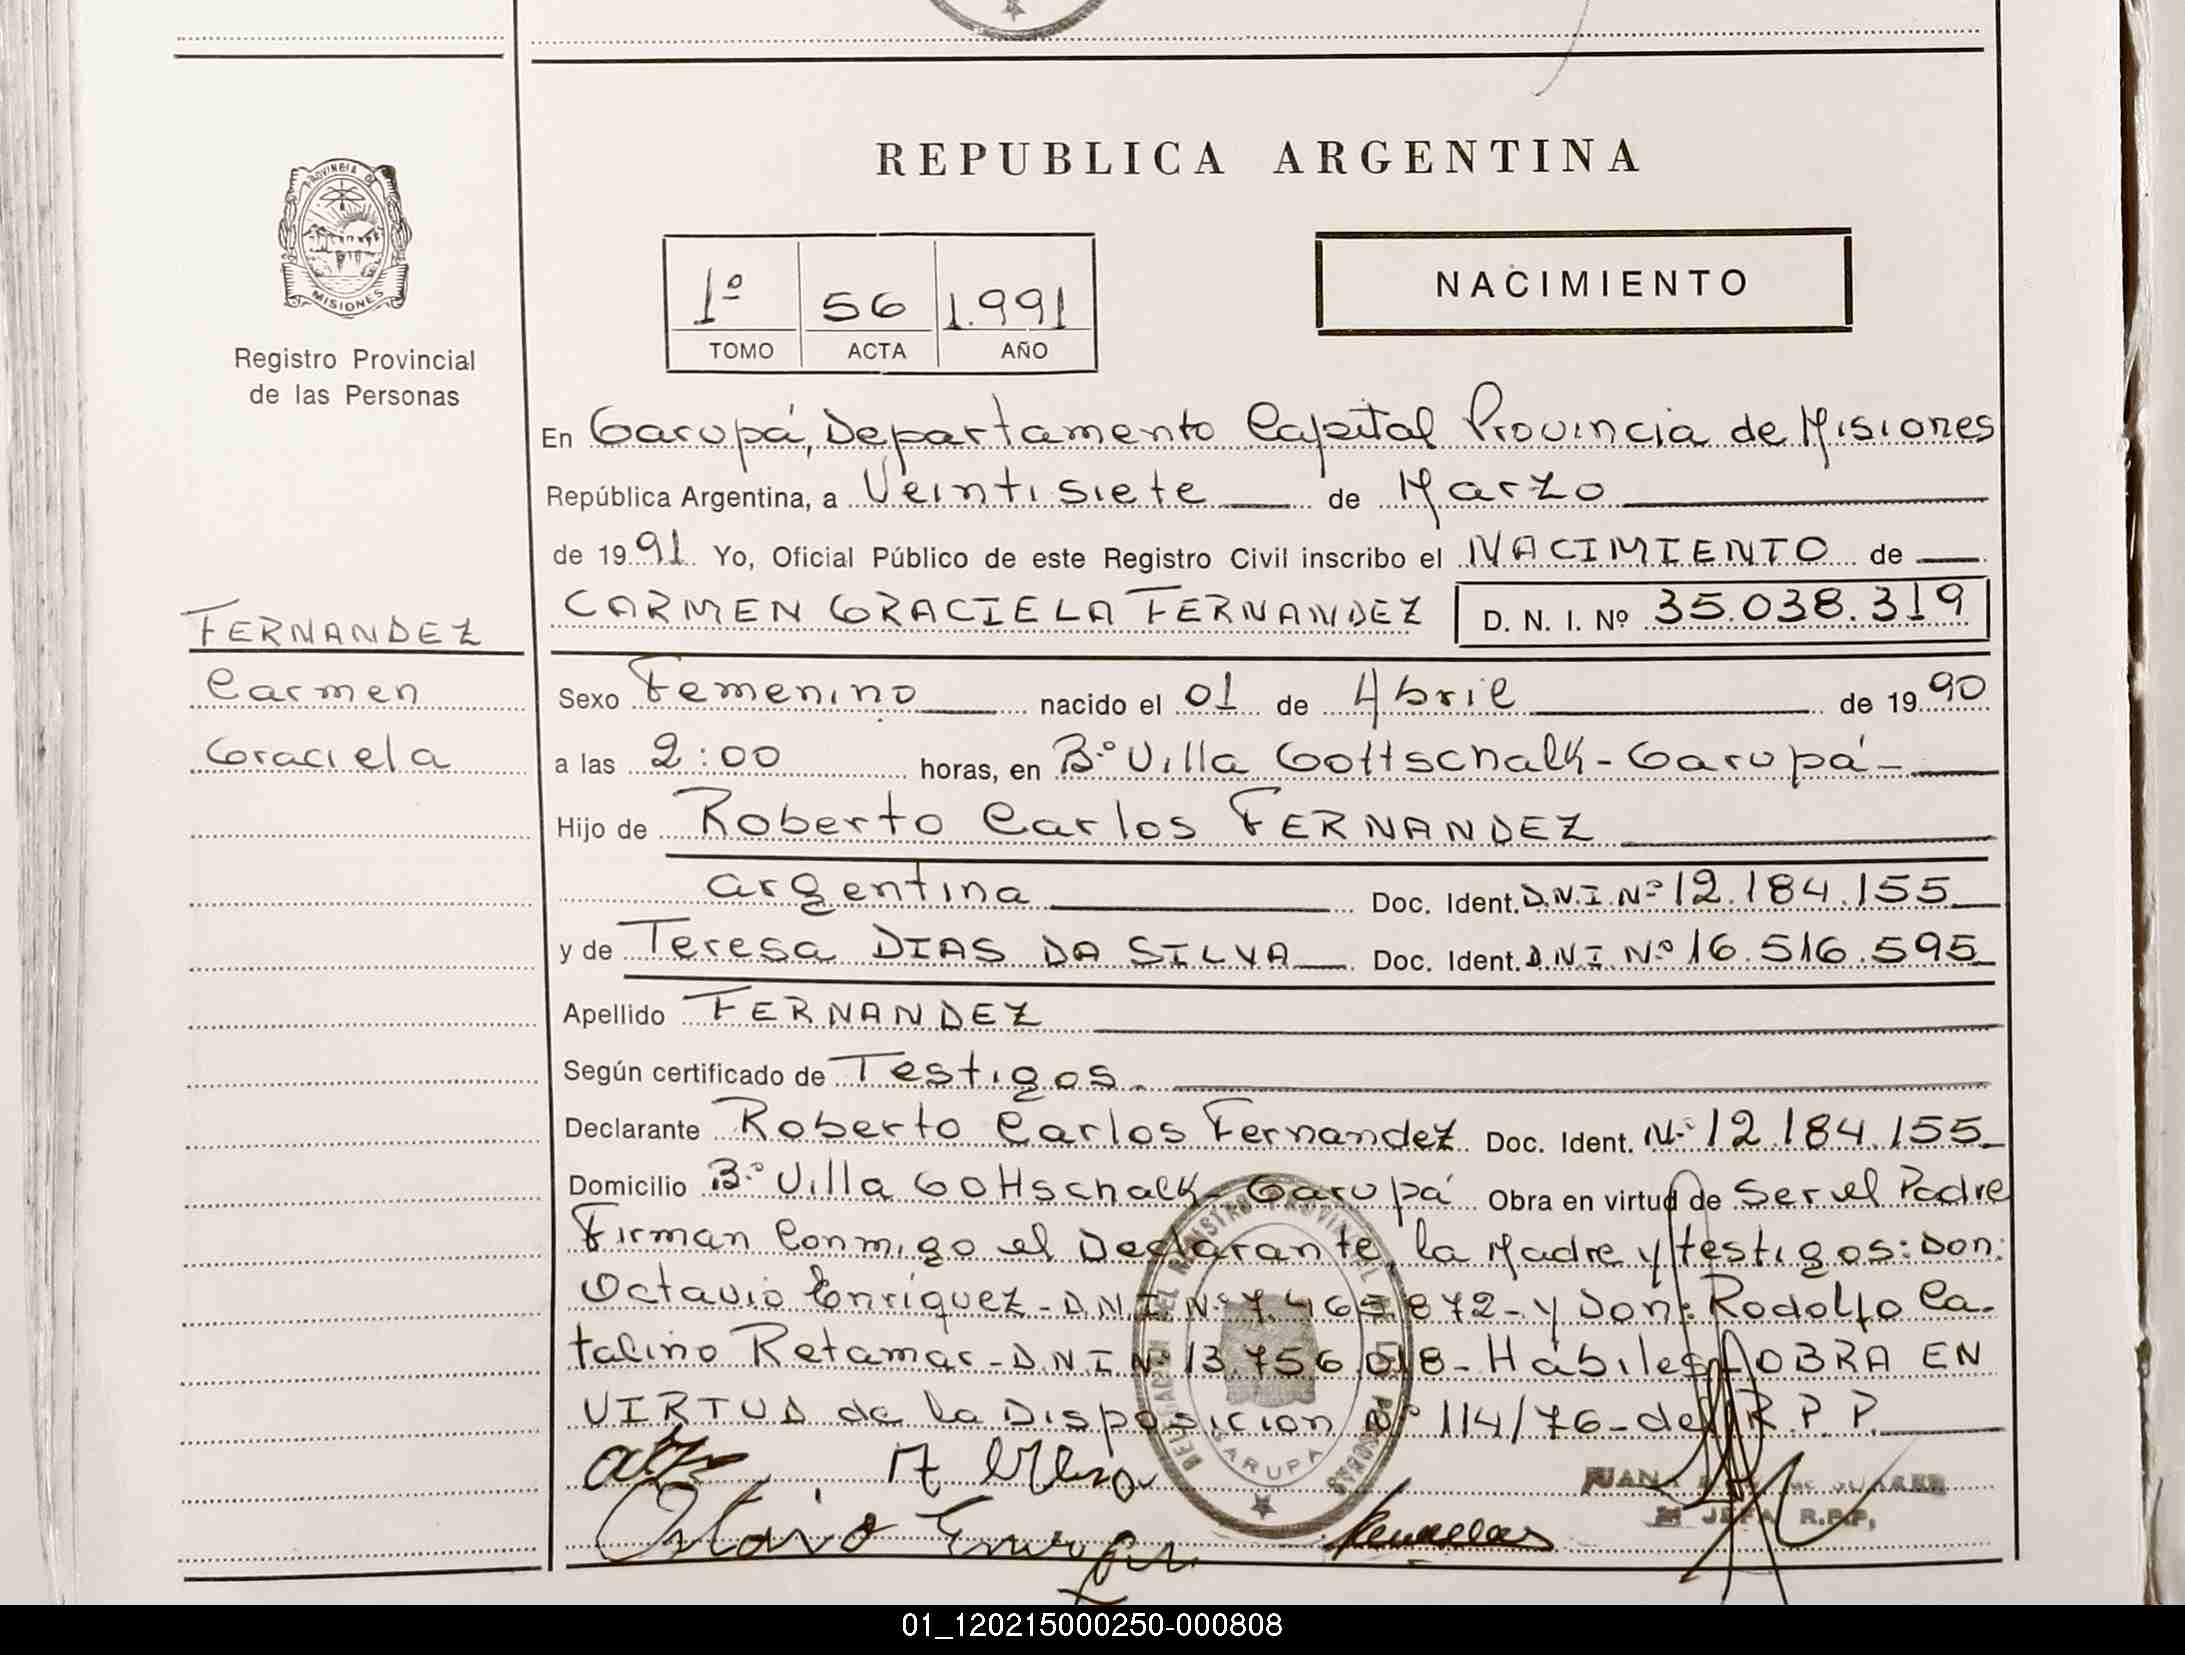 REPUBLICA ARGENTINA
PROVINCIA DE MISIONES
Registro Provincial
de las Personas
1º 56 1.991
TOMO ACTA AÑO
NACIMIENTO
En Garupá, Departamento Capital Provincia de Misiones
República Argentina, a Veintisiete de Marzo
de 1991 Yo, Oficial Público de este Registro Civil inscribo el NACIMIENTO de
CARMEN GRACIELA FERNANDEZ D. N. I. Nº 35.038.319
FERNANDEZ
Carmen
Graciela
Sexo Femenino nacido el 01 de Abril de 1990
a las 2:00 horas, en Bº Villa Gottschalk - Garupá -
Hijo de Roberto Carlos FERNANDEZ
argentina Doc. Ident. D.N.I. Nº 12.184.155
y de Teresa DIAS DA SILVA Doc. Ident. D.N.I. Nº 16.516.595
Apellido FERNANDEZ
Según certificado de Testigos.
Declarante Roberto Carlos Fernandez Doc. Ident. Nº 12.184.155
Domicilio Bº Villa Gottschalk - Garupá Obra en virtud de Ser el Padre
Firman Conmigo el Declarante, la Madre y testigos: Don:
Octavio Enriquez - D.N.I. Nº 872 - y Don: Rodolfo Ca-
talino Retamar - D.N.I. Nº 13.756.018 - Habiles OBRA EN
VIRTUD de la Disposicion Nº 114/76 - del R.P.P.
GARUPA
JUANA SUAREZ
JEFA R.P.P.
01_120215000250-000808